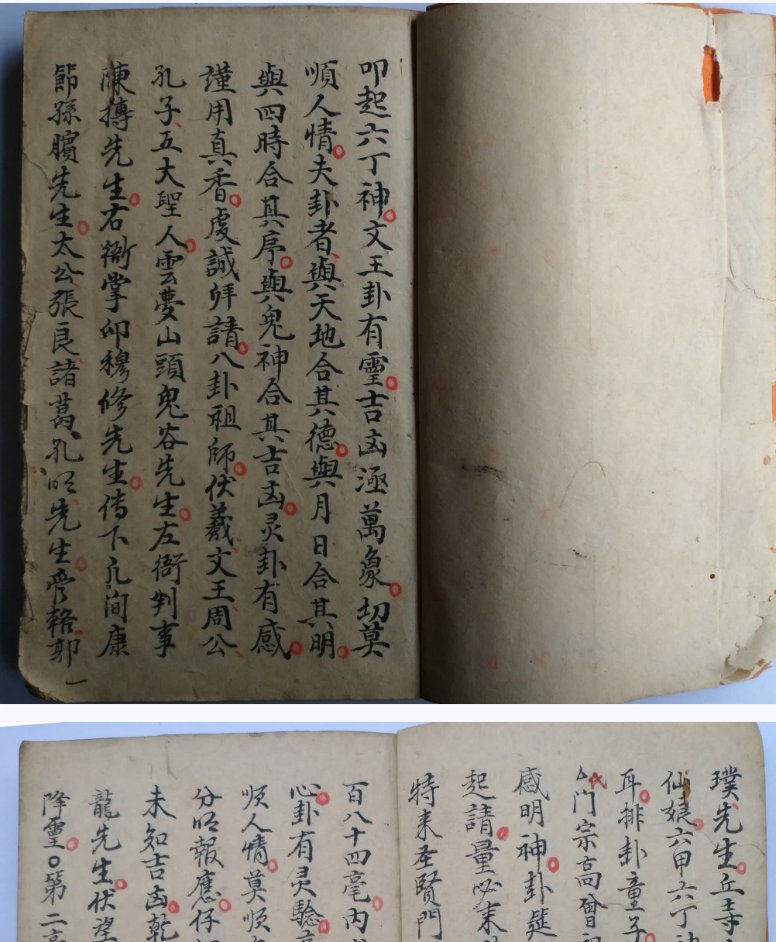 叩起六丁神文王卦有靈吉凶逐萬象切莫
順人情夫卦者與天地合其德與月日合其明
與四時合其序與鬼神合其吉凶灵卦有感
謹用真香虔誠拜請八卦祖師伏羲文王周公
孔子五大聖人雲夢山頭鬼谷先生左衙判事
陳摶先生右衙掌卯穆修先生傳下凡间康
節孫臏先生太公張良諸葛孔明先生管輅郭
璞先生丘寺
仙娘六甲六丁神
耳排卦童子
门宗高曾
感明神卦筵
起請量必来
特来圣賢門
百八十四毫内
心卦有灵驗
顺人情莫顺
分明報應仔
未知吉凶乾
龍先生伏望
降靈第二